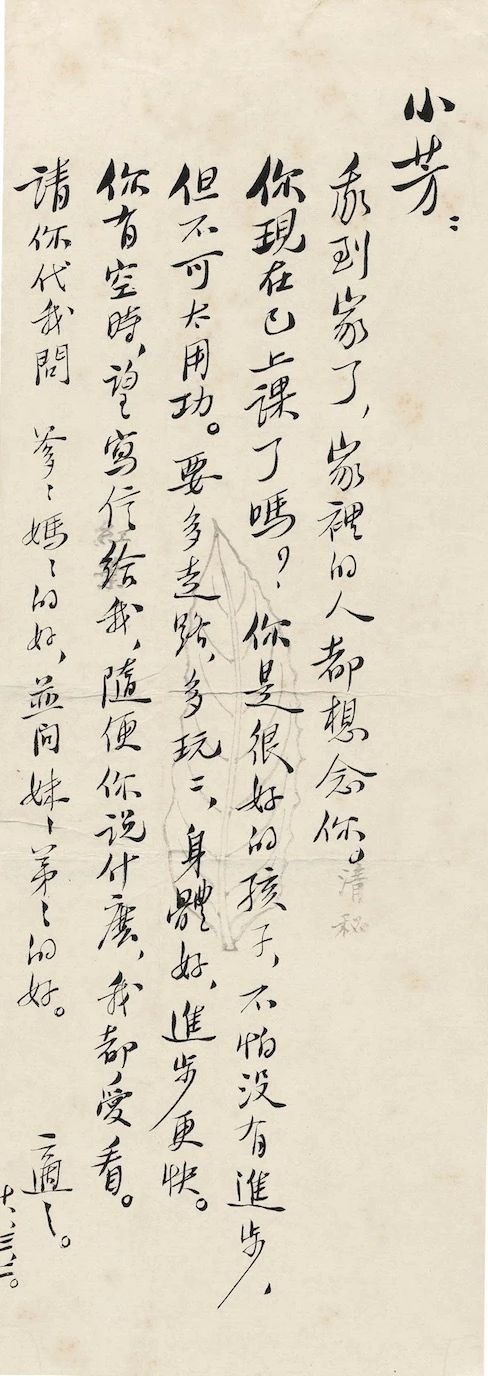 小芳：
我到家了，家裡的人都想念你。
你現在已上课了嗎？你是很好的孩子，不怕没有進步，
但不可太用功。要多走路，多玩二，身體好，進步更快。
你有空時，望寫信给我，隨便你说什麽，我都愛看。
請你代我問 爹〻媽〻的好，並问妹〻弟〻的好。
適〻。
十八，三，二。
清秘